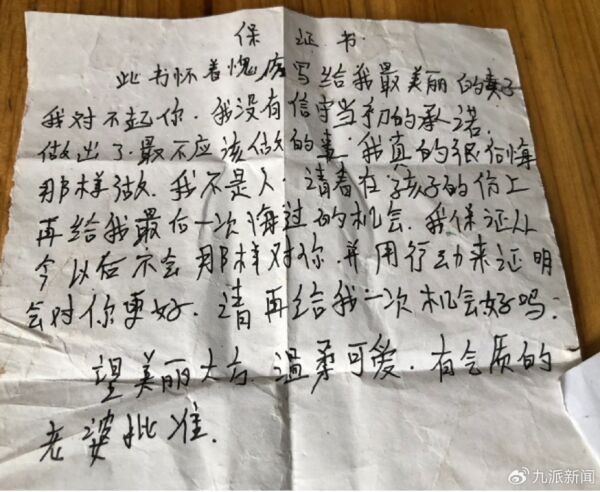 保 证 书
此书怀着愧疚写给我最美丽的妻子
我对不起你.我没有信守当初的承诺.
做出了.最不应该做的事.我真的很后悔
那样做.我不是人.请看在孩子的份上
再给我最后一次悔过的机会.我保证从
今以后不会那样对你.并用行动来证明
会对你更好.请再给我一次机会好吗:
望美丽大方.温柔可爱.有气质的
老婆批准.
九派新闻